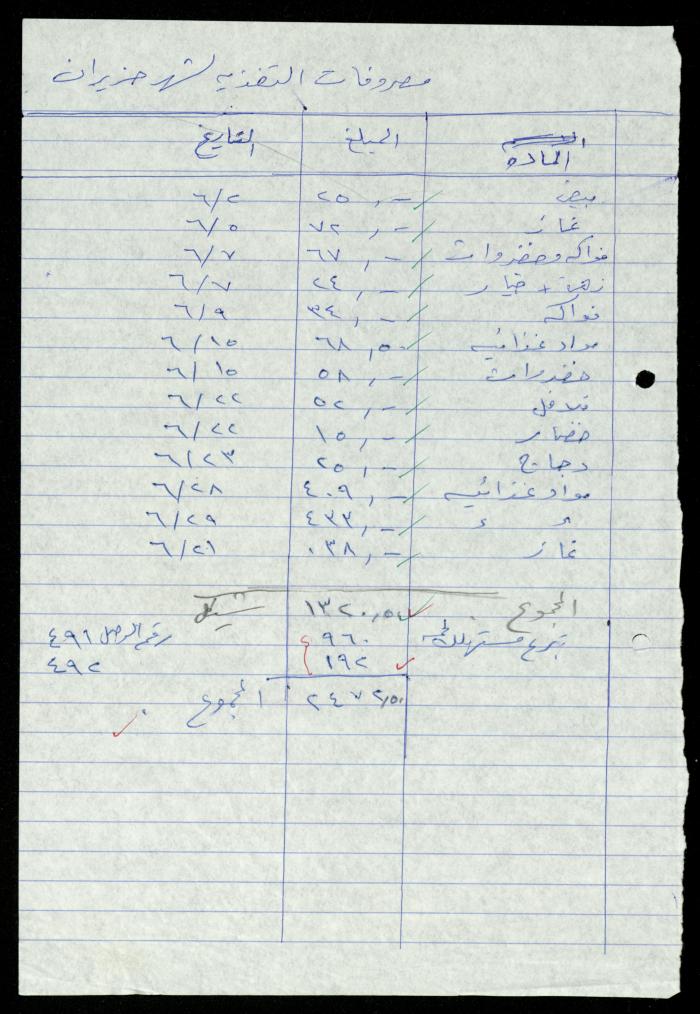 مصروفات التغذيه لشهر حزيران
الماده المبلغ التاريخ
بيض ٢٥,- ٦/٢
غاز ٧٢,- ٦/٥
فواكه وخضروات ٦٧,- ٦/٧
زهرة + خيار ٢٤,- ٦/٧
فواكه ٣٤,- ٦/٩
مواد غذائيه ٦٨,٥٠ ٦/١٥
خضروات ٥٨,- ٦/١٥
فلافل ٥٢,- ٦/٢٢
خضار ١٥,- ٦/٢٢
دجاج ٢٥,- ٦/٢٣
مواد غذائيه ٤٠٩,- ٦/٢٨
" " ٤٣٣,- ٦/٢٩
غاز ٠٣٨,- ٦/٢١
المجموع ١٣٢٠,٥٠ شيكل
تبرع مستهلك ٩٦٠ رقم الوصل ٤٩١
١٩٢ ٤٩٢
٢٤٧٢,٥٠ المجموع